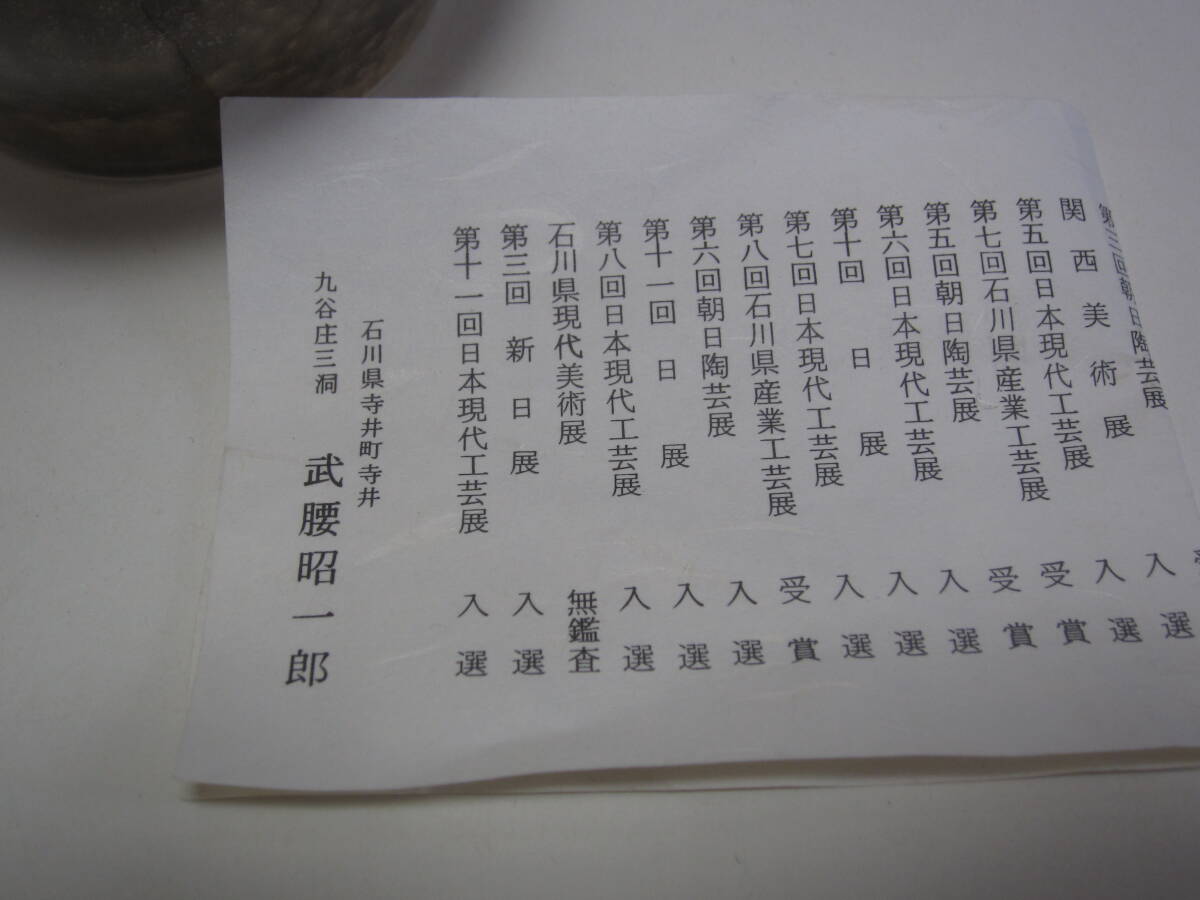 第三回朝日陶芸展
関西美術展 入選
第五回日本現代工芸展 入選
第七回石川県産業工芸展 受賞
第五回朝日陶芸展 受賞
第六回日本現代工芸展 入選
第十回 日展 入選
第七回日本現代工芸展 入選
第八回石川県産業工芸展 受賞
第六回朝日陶芸展 入選
第十一回 日展 入選
第八回日本現代工芸展 入選
石川県現代美術展 無鑑査
第三回 新日展 入選
第十一回日本現代工芸展 入選
石川県寺井町寺井
九谷庄三洞 武腰昭一郎